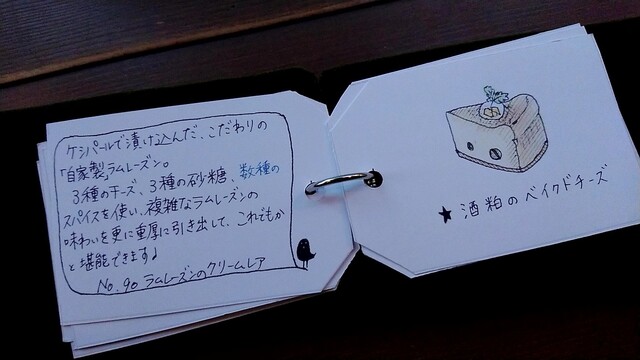 ケシパールで漬け込んだ、こだわりの
「自家製」ラムレーズン。
3種のチーズ、3種の砂糖、数種の
スパイスを使い、複雑なラムレーズンの
味わいを更に重厚に引き出して、これでもか
と堪能できます♪
No.90 ラムレーズンのクリームレア
★酒粕のベイクドチーズ